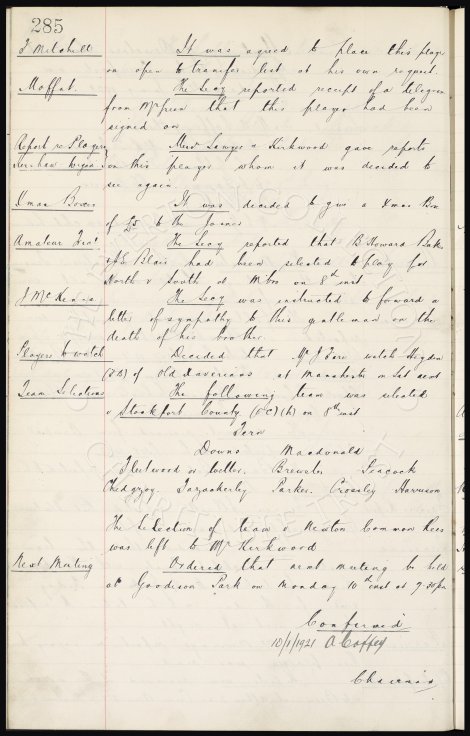 285
F Mitchell It was agreed to place this player
on open to transfer list at his own request.
Moffat. The Secy reported receipt of a telegram
from Mr Green that this player had been
signed on
Report re Players Messrs Sawyer & Kirkwood gave reports
on this player whom it was decided to
see again.
Xmas Boxes It was decided to give a Xmas Box
of £5 to the
Amateur The Secy reported that B. Howard Baker
& J.E. Blair had been selected to play for
North v South at M'bro on 8th inst
J McKenna The Secy was instructed to forward a
letter of sympathy to this gentleman on the
death of his brother
Players to watch Decided that Mr J Fare watch
of Old Xaverians at Manchester on Sat next
Team Selections The following team was selected
v Stockport County (h) on 8th inst
Fern
Downs Macdonald
Fleetwood or Brewster Peacock
Chedgzoy Fazackerley Parker Crossley Harrison
The selection of team v Newton Common Recs
was left to Mr Kirkwood
Next Meeting Ordered that next meeting be held
at Goodison Park on Monday 10th inst at 7-30pm
Confirmed
10/1/1921 A Coffey
Chairman